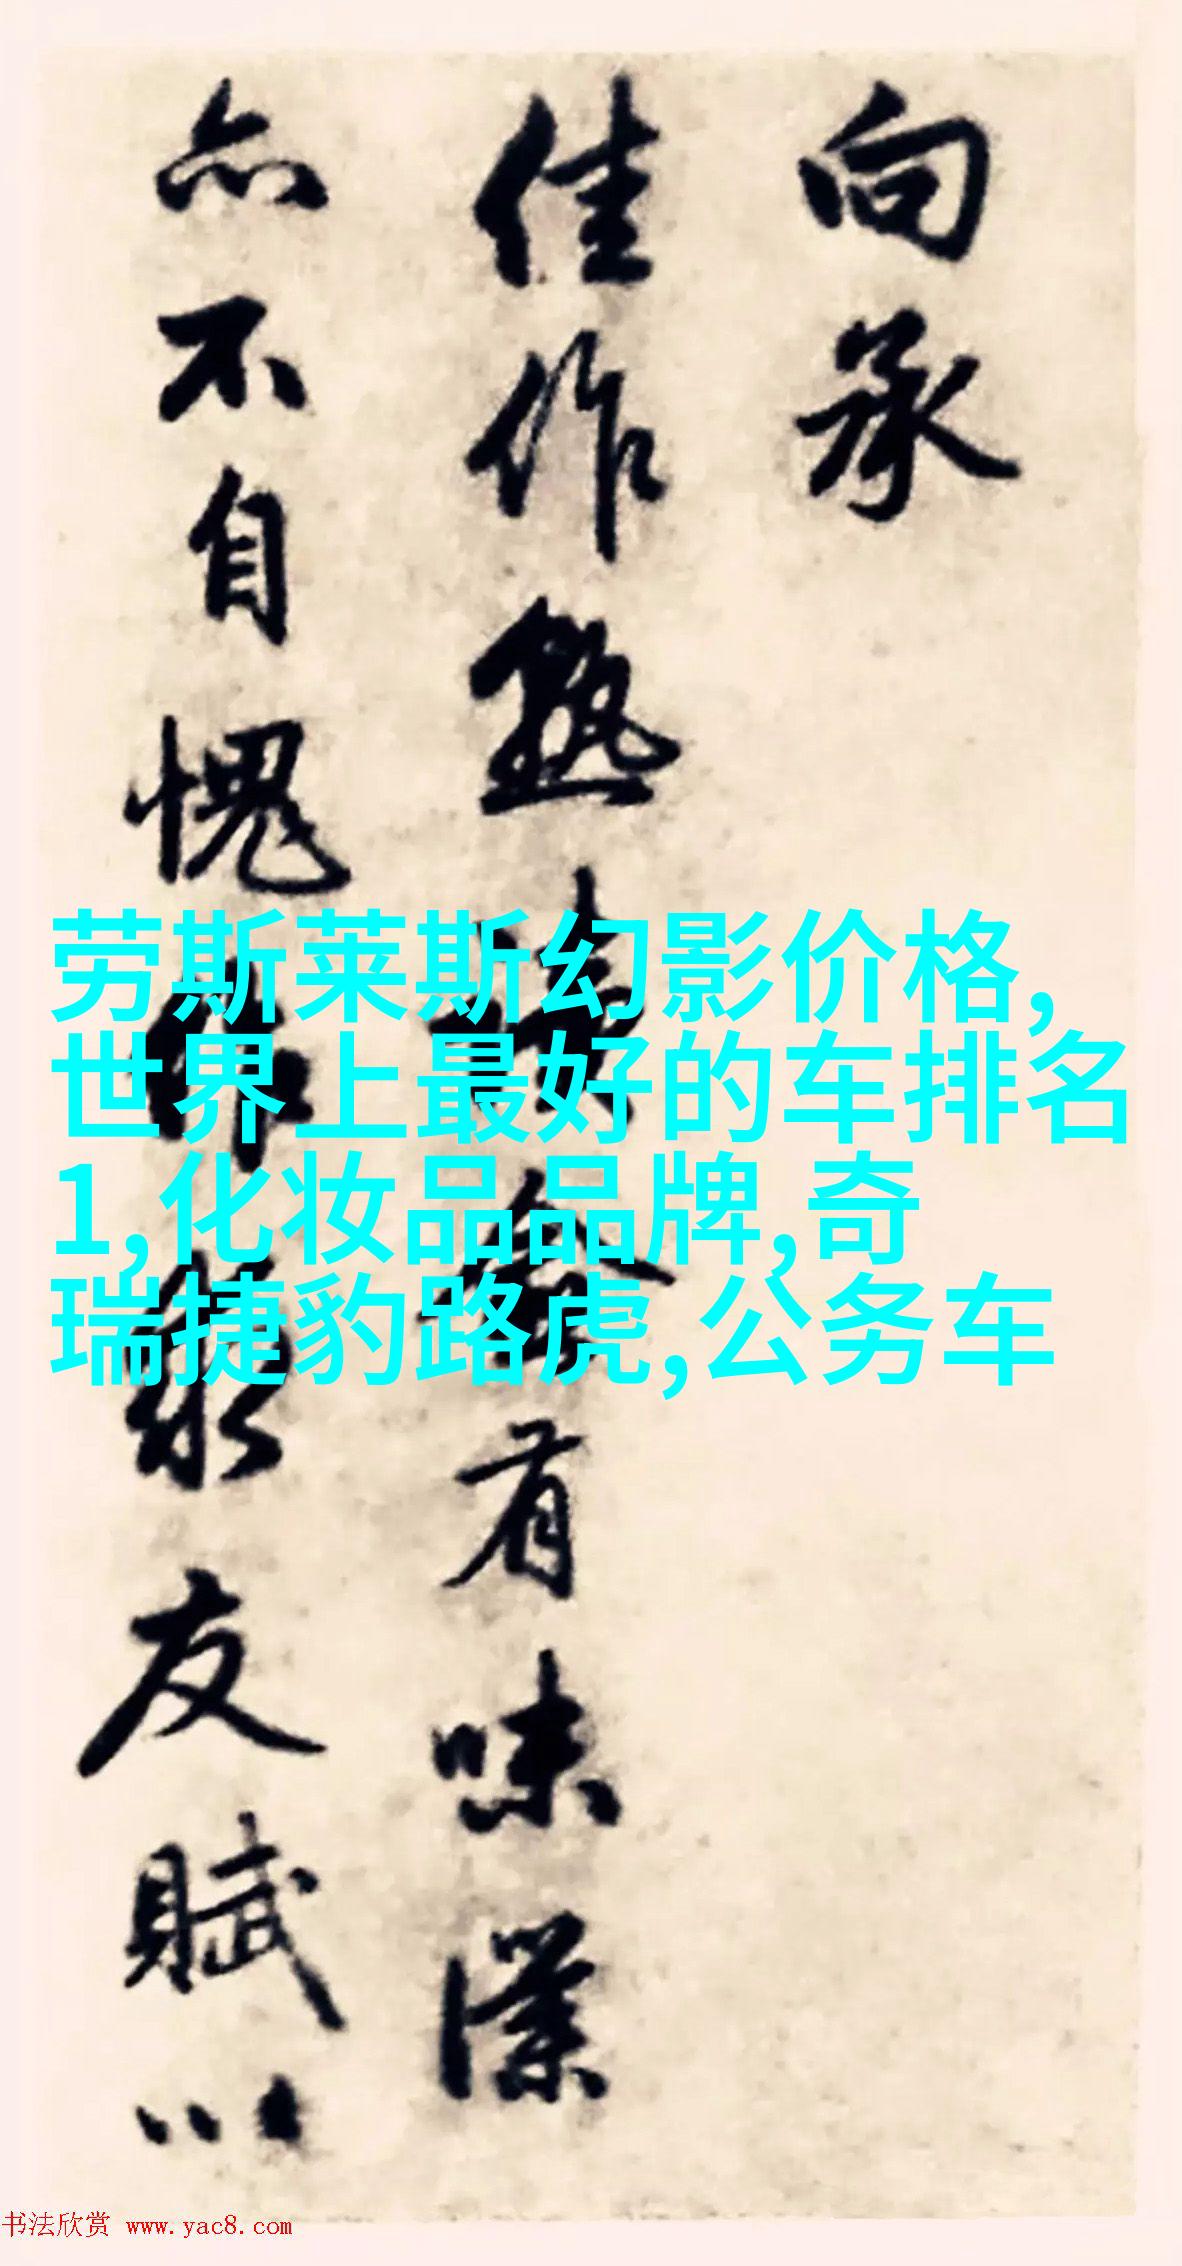 向承
佳作熟读益有味仆
亦不自愧作求友赋以
劳斯莱斯幻影价格,
世界上最好的车排名
1,化妆品品牌,奇
瑞捷豹路虎,公务车
书法欣赏 www.yac8.com